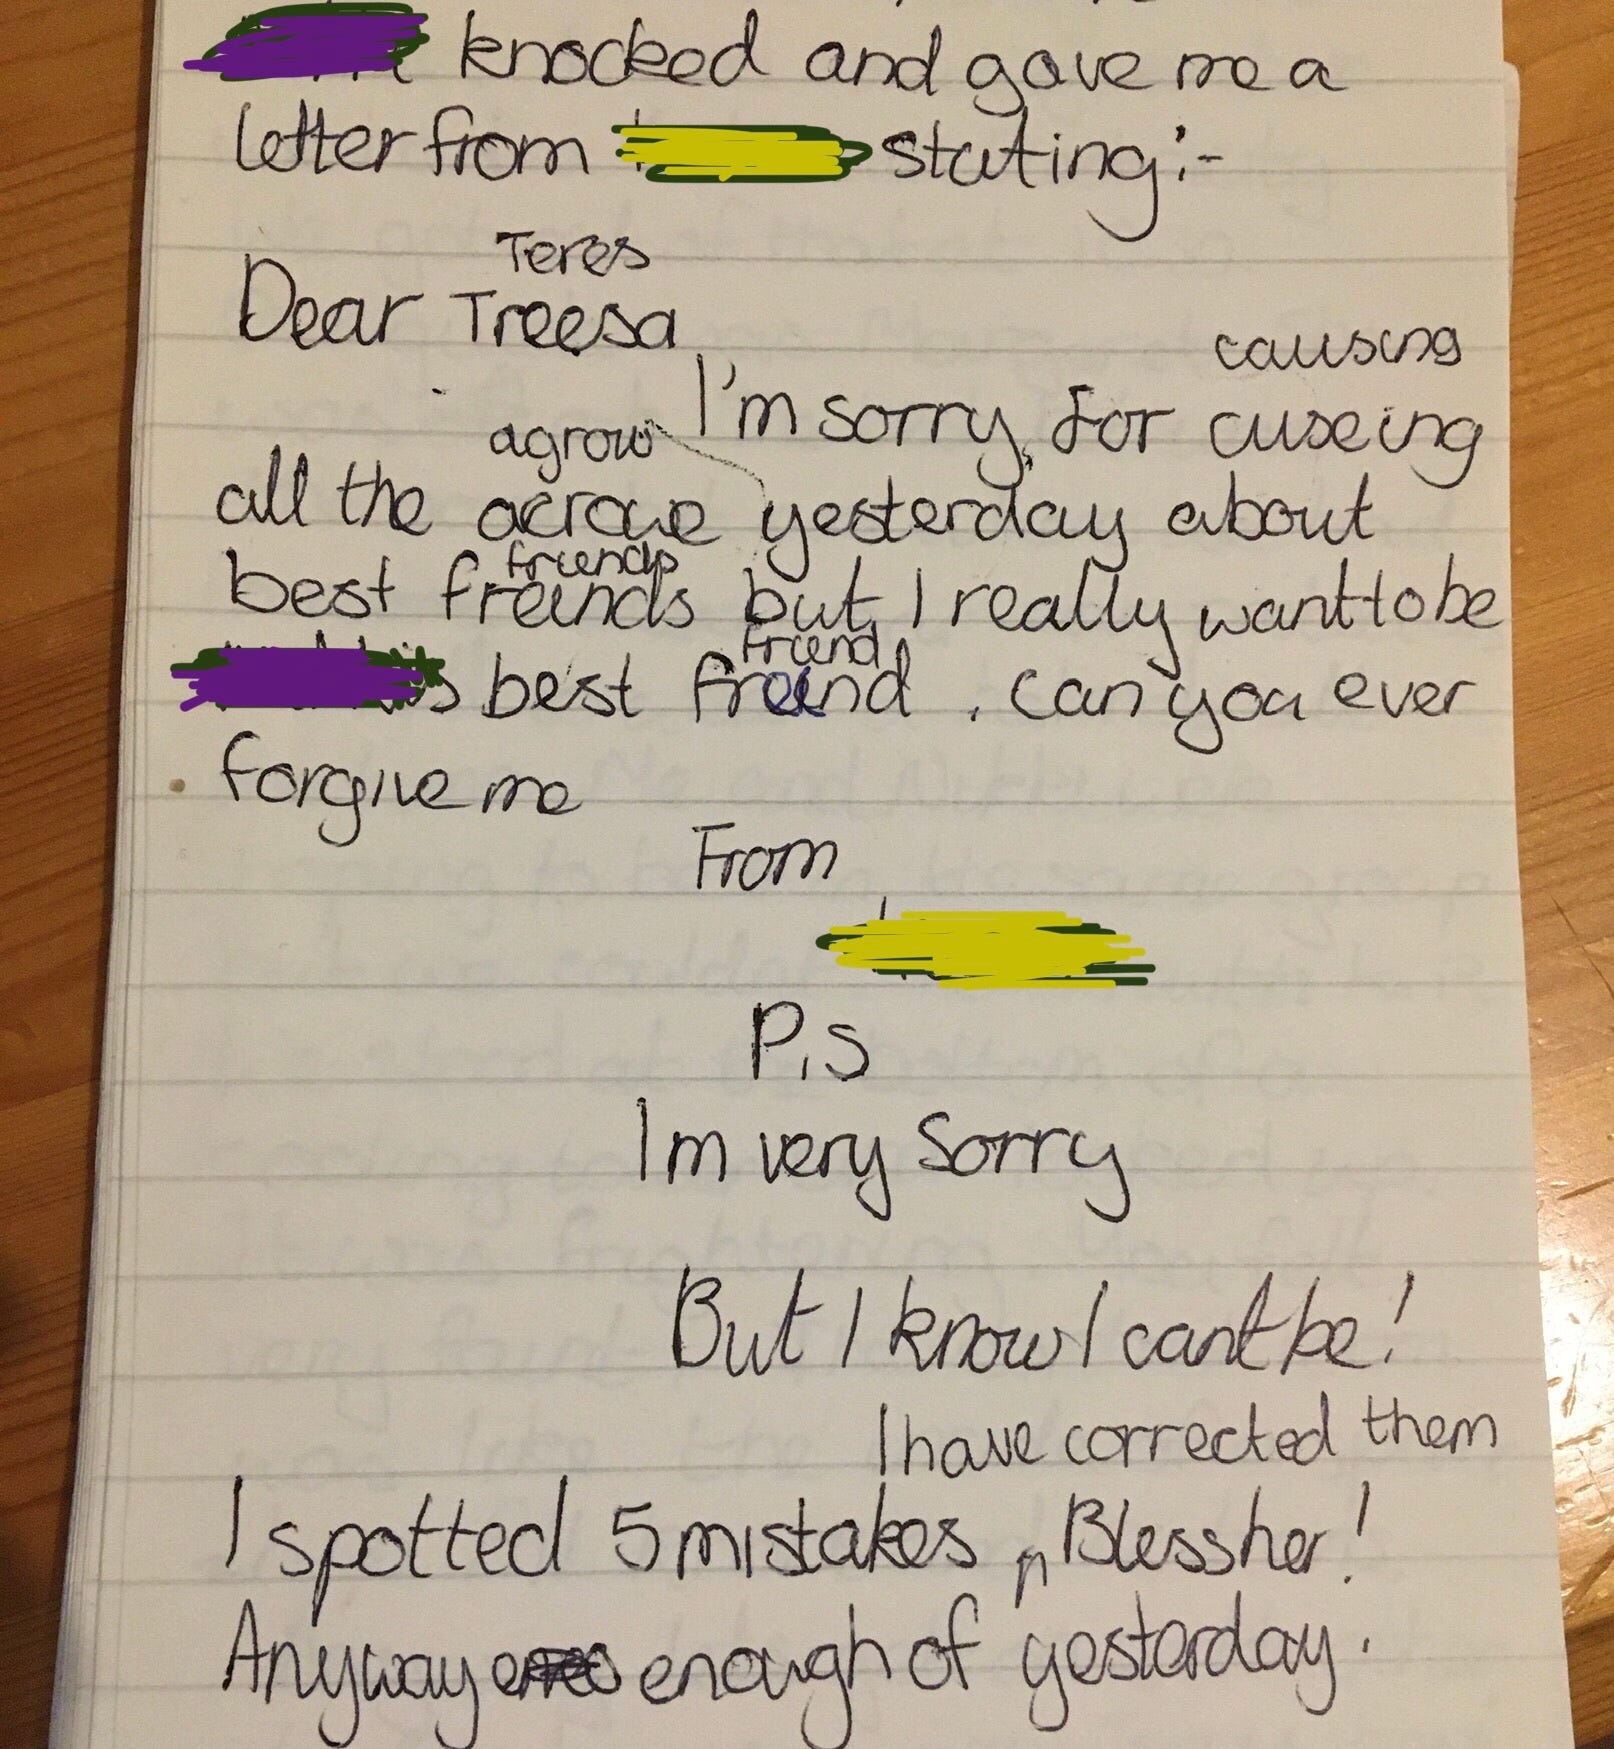 knocked and gave me a
letter from stating:-
Teres
Dear Treesa
causing
I'm sorry, for cuseing
agrow
all the acrowe yesterday about
friends
best freinds but, I really want to be
friend
s best freind . can you ever
forgive me
From
P.s
Im very sorry
But I know I can't be!
I have corrected them
I spotted 5 mistakes, Bless her!
Anyway enough of yesterday.